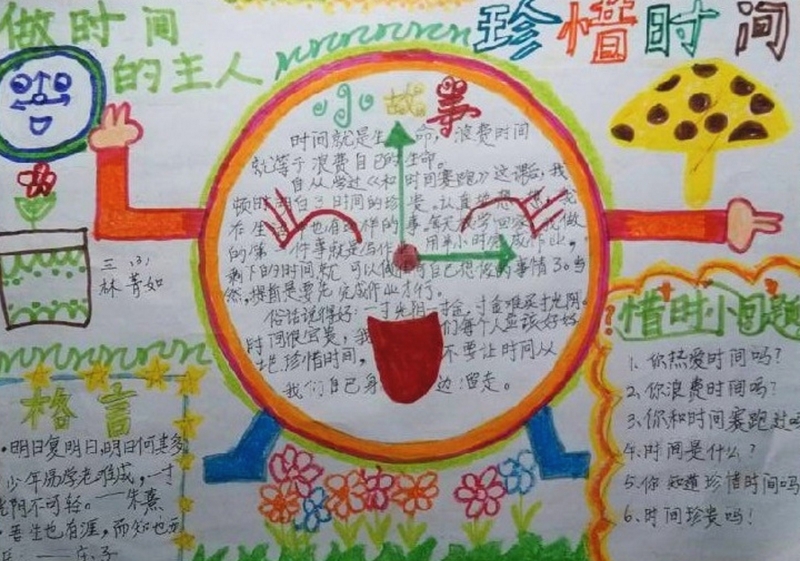 珍惜时间
做时间
的主人
小故事
时间就是生命，浪费时间
就等于浪费自己的生命。
自从学过《和时间赛跑》这课后，我
顿时明白了时间的珍贵。认真想想，我
在生活中也有这样的事。每天放学回家，我做
的第一件事就是写作，用半小时完成作业，
剩下的时间就可以做自己想做的事情了。当
然，提前是要先完成作业才行。
俗话说得好：一寸光阴一寸金，寸金难买寸光阴。
时间很宝贵，我们每个人应该好好
地珍惜时间，不要让时间从
我们自己身边溜走。
三（3）
林菁如
格言
·明日复明日，明日何其多
少年易学老难成，一寸
光阴不可轻。——朱熹
·吾生也有涯，而知也无
——庄子
惜时小问题
1、你热爱时间吗？
2、你浪费时间吗？
3、你和时间赛跑过吗
4、时间是什么？
5、你知道珍惜时间吗
6、时间珍贵吗！